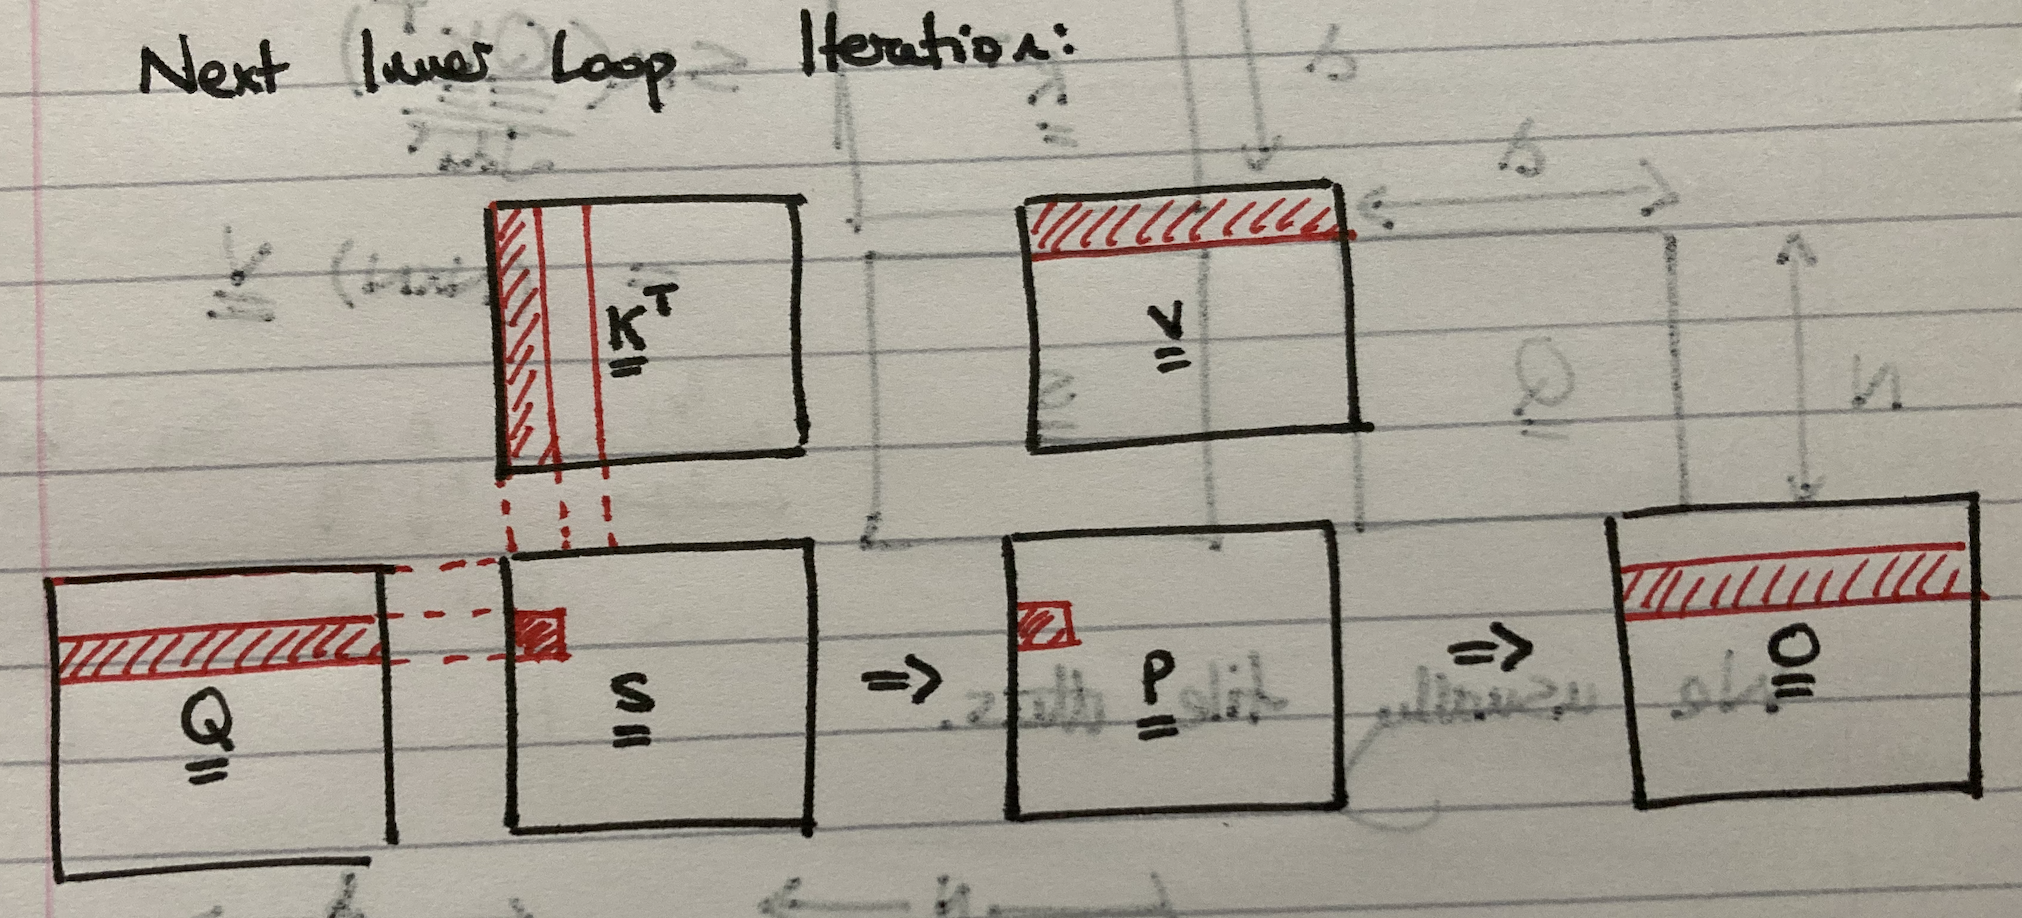 Next Inner Loop Iteration:
K^T
V
Q
S
=>
P
=>
O